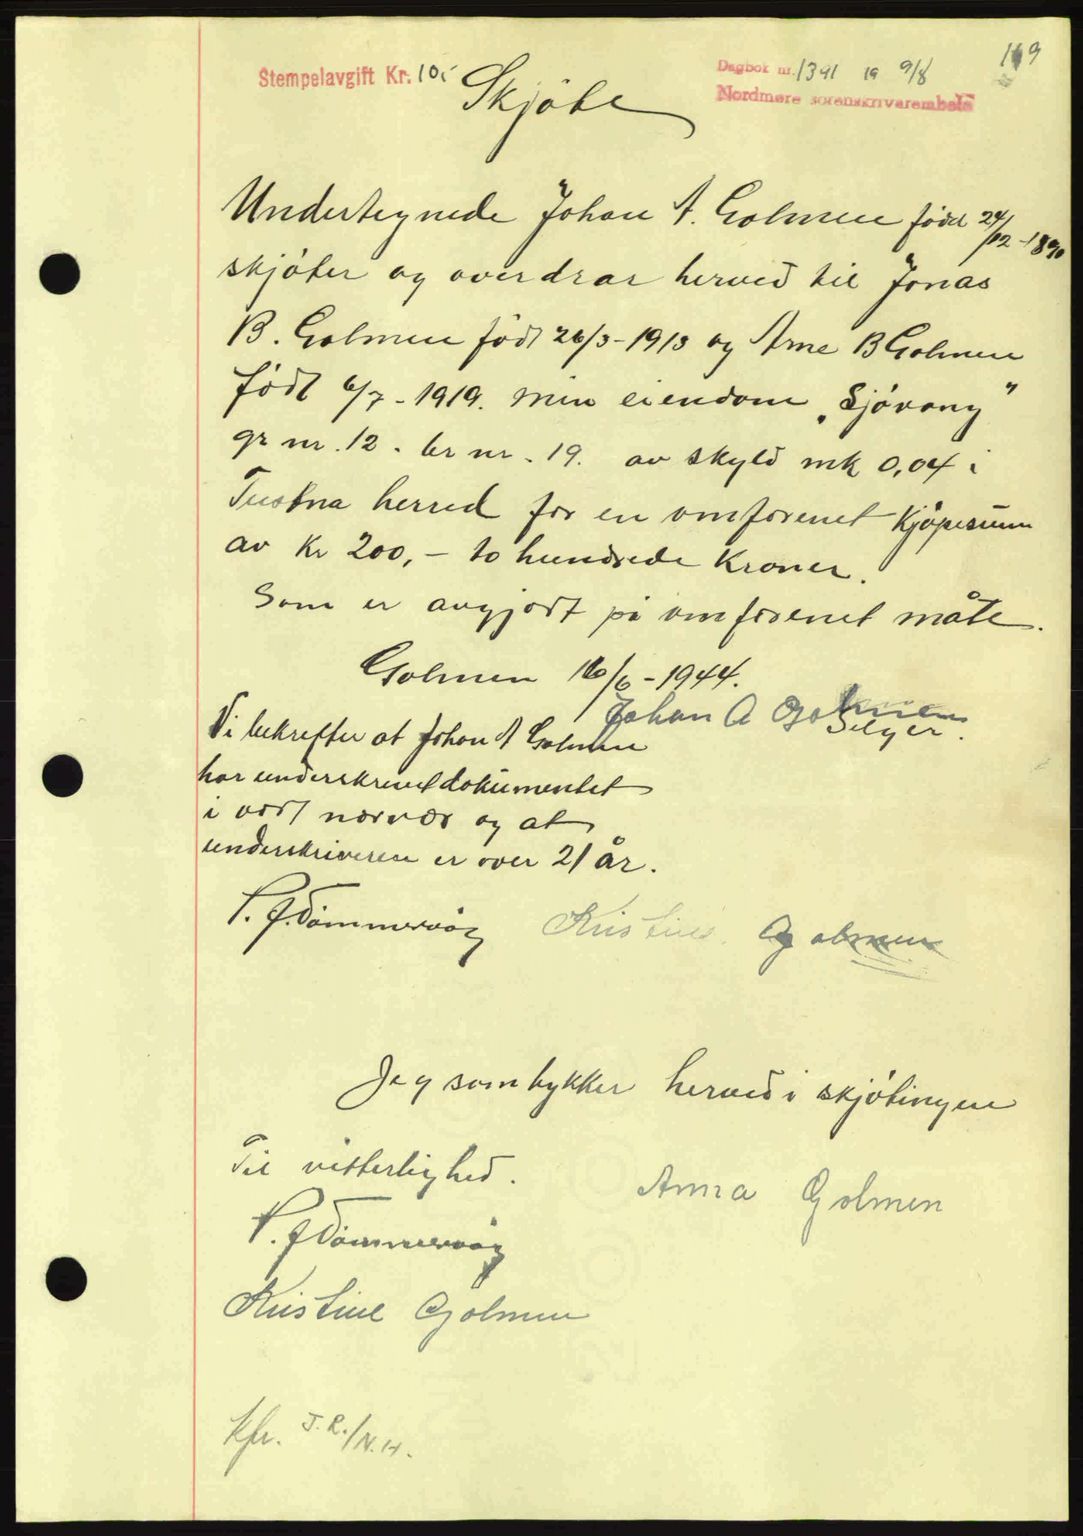 Stempelavgift Kr. 10,-
Dagbok nr. 1391 19 9/8
Nordmøre sorenskrivarembete
Skjöte
Undertegnede Johan A. Golmen född 24/12-1890
skjöter og overdrar herved til Jonas
B. Golmen född 26/3-1913 og Arne B Golmen
född 6/7-1919. min eiendom „Sjövang”
gr nr. 12. br nr. 19. av skyld mk 0,04 i
Tustna herred for en omforenet Kjöpesum
av Kr 200,- to hundrede Kroner.
Som er avgjort på omforenet måte.
Golmen 16/6-1944.
Johan A Golmen
Selger.
Vi bekrefter at Johan A Golmen
har underskrevet dokumentet
i vort nærvær og at
underskriveren er over 21 år.
P. J. Tömmervåg Kristine Golmen
Jeg samtykker herved i skjötingen
Til vitterlighed.
Anna Golmen
P. J Tömmervåg
Kristine Golmen
Kfr. J.R./N.H.